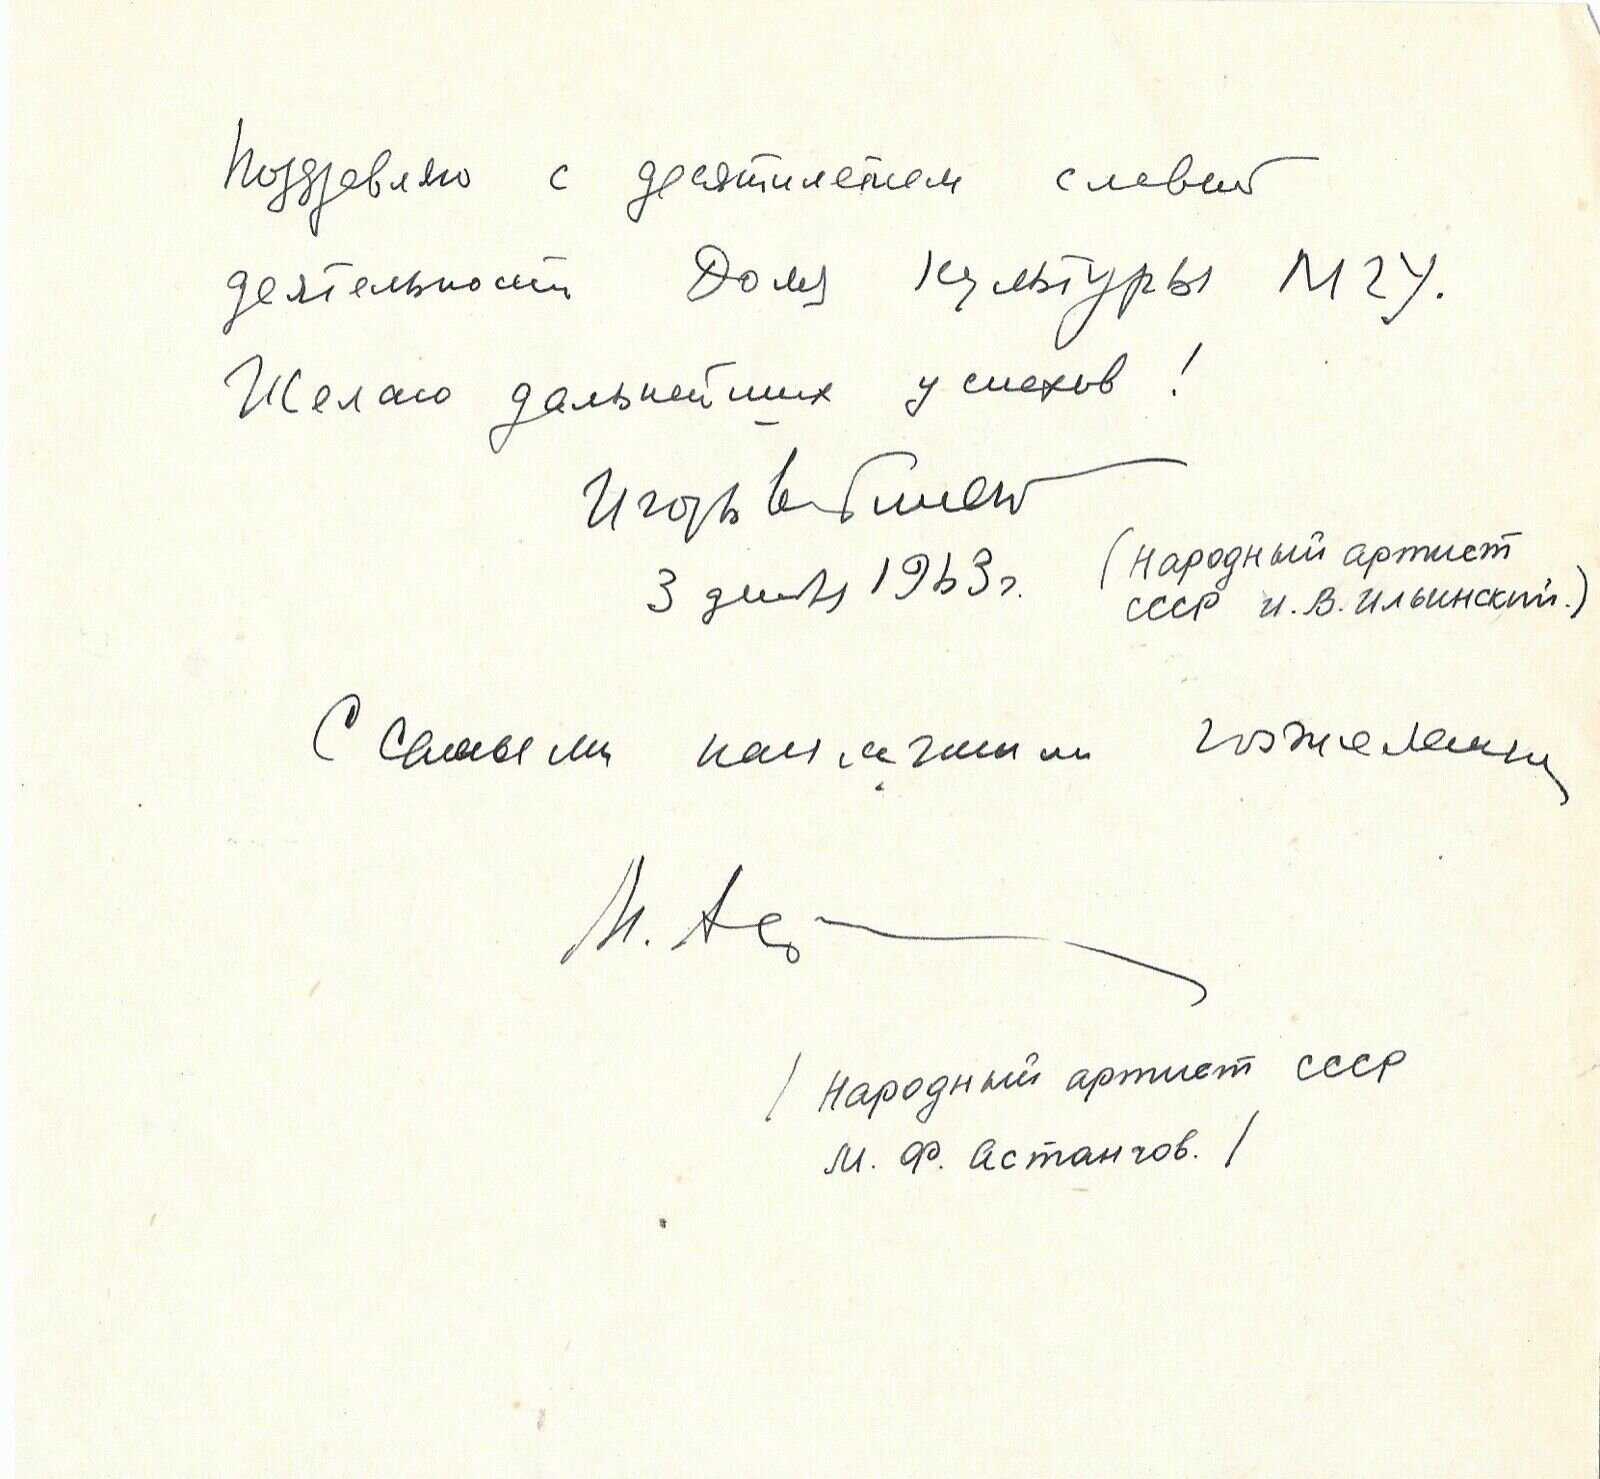 Поздравляю с десятилетием славной
деятельности Дома Культуры МГУ.
Желаю дальнейших успехов!
Игорь Ильинский
3 дек 1963 г. (Народный артист
СССР И. В. Ильинский.)
С самыми наилучшими пожеланиями
М. Аст
/ Народный артист СССР
М. Ф. Астангов. /